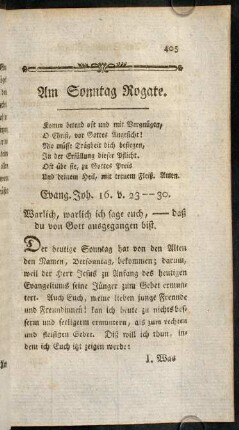 405
Am Sonntag Rogate.
Komm betend oft und mit Vergnügen,
O Christ, vor Gottes Angesicht!
Nie müsse Trägheit dich besiegen,
In der Erfüllung dieser Pflicht.
Oft übe sie, zu Gottes Preis
Und deinem Heil, mit treuem Fleiß. Amen.
Evang. Joh. 16. v. 23—30.
Warlich, warlich ich sage euch, — daß
du von Gott ausgegangen bist.
Der heutige Sonntag hat von den Alten
den Namen, Betsonntag, bekommen; darum,
weil der Herr Jesus zu Anfang des heutigen
Evangeliums seine Jünger zum Gebet ermun-
tert. Auch Euch, meine lieben junge Freunde
und Freundinnen! kan ich heute zu nichts bes-
serm und seeligerm ermuntern, als zum rechten
und fleißigen Gebet. Diß will ich thun, in-
dem ich Euch itzt zeigen werde:
1. Was